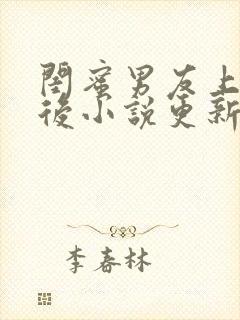 閨蜜男友上
後小說更新
李春林